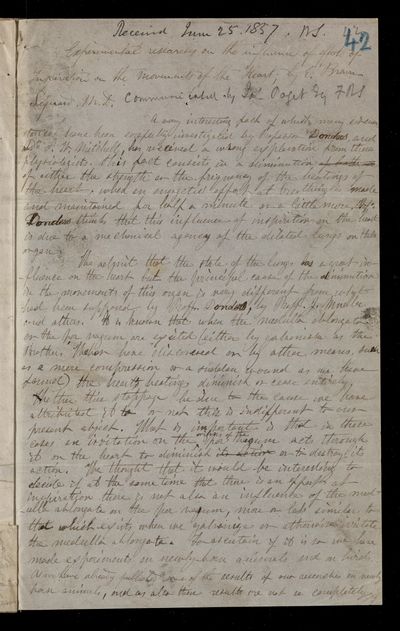 Received June 25. 1857. RS.
42
Experimental researches on the influence of efforts of
Inspiration on the Movements of the Heart, by E. Brown-
Séquard, M.D. Communicated by Jas Paget Esq FRS
A very interesting fact of which many circum-
stances have been carefully investigated by Professor Donders and
Dr. S. W. Mitchell, has received a wrong explanation from these
physiologists. This fact consists in a diminution
of either the strength or the frequency of the beatings of
the heart, when an energetic effort at breathing is made
and maintained for half a minute or a little more. Prof.
Donders thinks that this influence of inspiration on the heart
is due to a mechanical agency of the dilated lungs on that
organ.
We admit that the state of the lungs has a great in-
fluence on the heart but the principal cause of the diminution
in the movements of this organ is very different from what
had been supposed by Profr. Donders, by Profr. J. Müller
and others. It is known that when the medulla oblongata
or the par vagum are excited (either by galvanism as the
Brothers Weber have discovered or by other means, such
as a mere compression or a sudden wound as we have
found) the heart's beatings diminish or cease entirely.
Whether this stoppage be due to the cause we have
attributed it to or not this is indifferent to our
present object. What is important is that in these
cases an irritation on the origins of the par vagum acts through
it on the heart to diminish its action or to destroy its
action. We thought that it would be interesting to
decide if at the same time that there is an effort at
inspiration there is not also an influence of the med-
ulla oblongata on the par vagum, more or less similar to
that which exists when we galvanize or otherwise irritate
the medulla oblongata. To ascertain if it is so we have
made experiments on newly-born animals and on birds.
We have already published some of the results of our researches on newly
born animals, and as also these results are not so completely